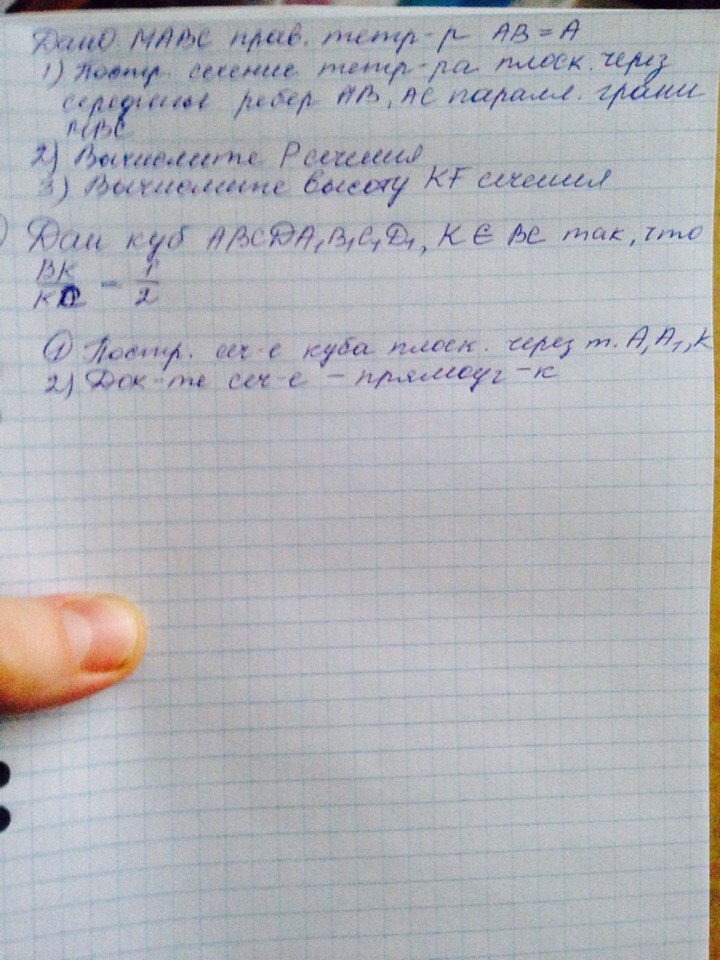 Дано МАВС прав. тетр-р АВ = А
1) Постр. сечение тетр-ра плоск. через
середины ребер АВ, АС паралл. грани
МВС
2) Вычислите Р сечения
3) Вычислите высоту KF сечения
) Дан куб ABCDA₁B₁C₁D₁, K ∈ BC так, что
BK
— = 1/2
KC
① Постр. сеч-е куба плоск. через т. А, А₁, К
2) Док-те сеч-е – прямоуг-к